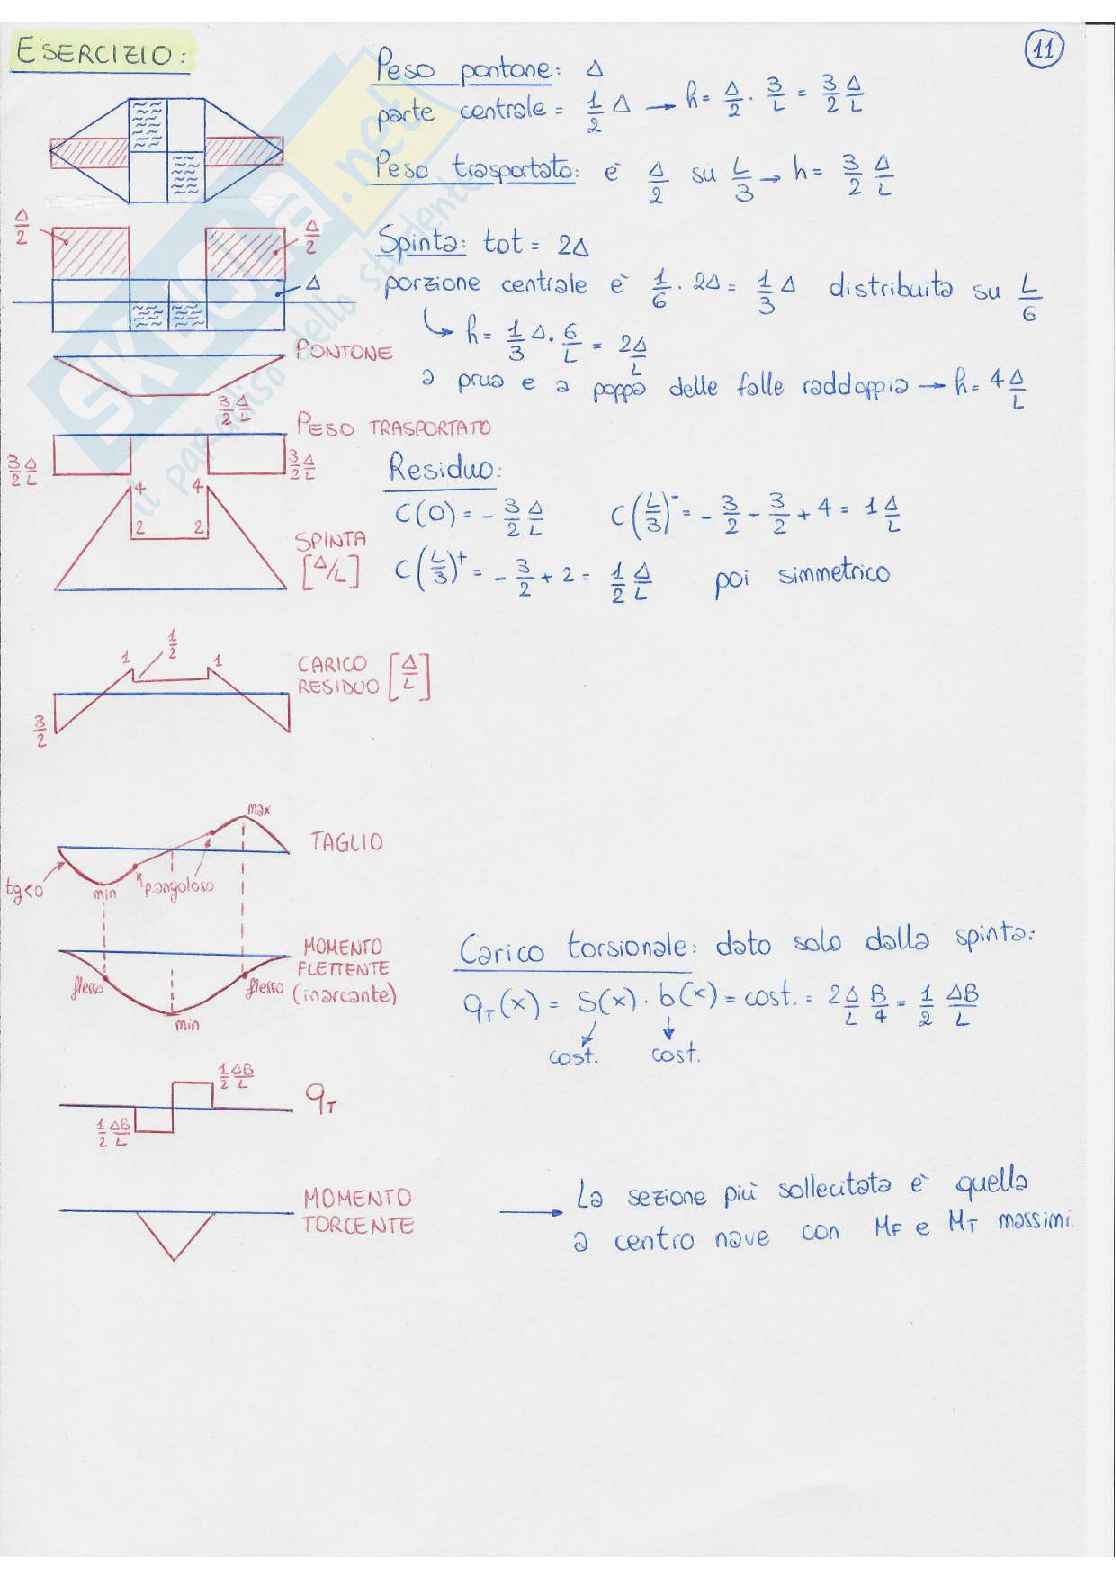 ESERCIZIO:
11
Peso pontone: Δ
parte centrale = 1/2 Δ → h = Δ/2 · 3/L = 3/2 Δ/L
Peso trasportato: è Δ/2 su L/3 → h = 3/2 Δ/L
Δ/2
Δ/2
Δ
Spinta: tot = 2Δ
porzione centrale è 1/6 · 2Δ = 1/3 Δ distribuita su L/6
↳ h = 1/3 Δ · 6/L = 2Δ/L
a prua e a poppa delle falle raddoppia → h = 4Δ/L
PONTONE
3/2 Δ/L
PESO TRASPORTATO
3/2 Δ/L
3/2 Δ/L
4
4
2
2
SPINTA
[Δ/L]
Residuo:
C(0) = - 3/2 Δ/L
C(L/3)⁻ = - 3/2 - 3/2 + 4 = 1Δ/L
C(L/3)⁺ = - 3/2 + 2 = 1/2 Δ/L
poi simmetrico
1
1/2
1
CARICO
RESIDUO [Δ/L]
3/2
max
TAGLIO
tg<0
min
p.angoloso
MOMENTO
FLETTENTE
(inarcante)
flesso
flesso
min
Carico torsionale: dato solo dalla spinta:
qT(x) = S(x) · b(x) = cost. = 2Δ/L B/4 = 1/2 ΔB/L
cost.
cost.
1/2 ΔB/L
qT
1/2 ΔB/L
MOMENTO
TORCENTE
→ La sezione più sollecitata è quella
a centro nave con MF e MT massimi.
SKUOLA.net
il paradiso dello studente